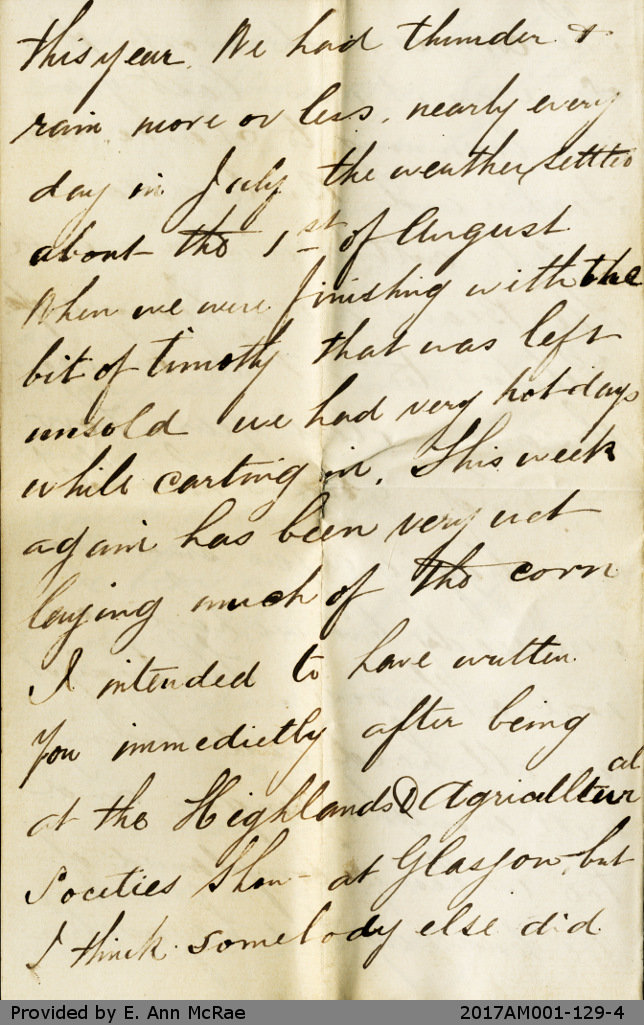 this year. We had thunder &
rain more or less. nearly every
day in July the weather settled
about the 1st of August
When we were finishing with the
bit of timothy that was left
unsold we had very hot days
while carting in. This week
again has been very wet
laying much of the corn
I intended to have written
you immedietly after being
at the Highlands & Agricultural
Societies Show at Glasgow but
I think somebody else did
Provided by E. Ann McRae 2017AM001-129-4